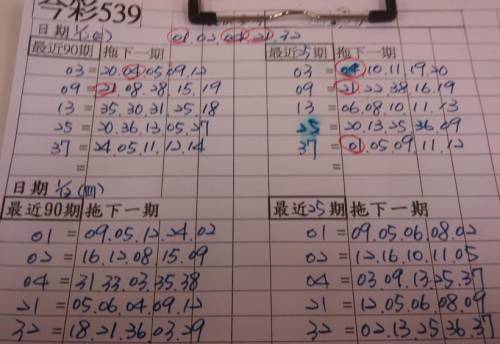 今彩539
日期 1/2 01.02.04.21.32
最近90期 拖下一期 最近25期 拖下一期
03 = 20.04.05.09.12 03 = 04.10.11.19.20
09 = 21.08.28.15.19 09 = 21.22.38.16.19
13 = 35.30.31.25.18 13 = 06.08.10.11.13
25 = 20.36.13.05.27 25 = 20.13.25.36.09
37 = 24.05.11.12.14 37 = 01.05.09.11.12
= =
日期 1/3 (四)
最近90期 拖下一期 最近25期 拖下一期
01 = 09.05.12.24.02 01 = 09.05.06.08.02
02 = 16.12.08.15.09 02 = 12.16.10.11.05
04 = 31.33.03.35.38 04 = 03.09.13.25.37
21 = 05.06.04.09.12 21 = 12.05.06.08.09
32 = 18.21.36.03.29 32 = 02.13.25.36.37